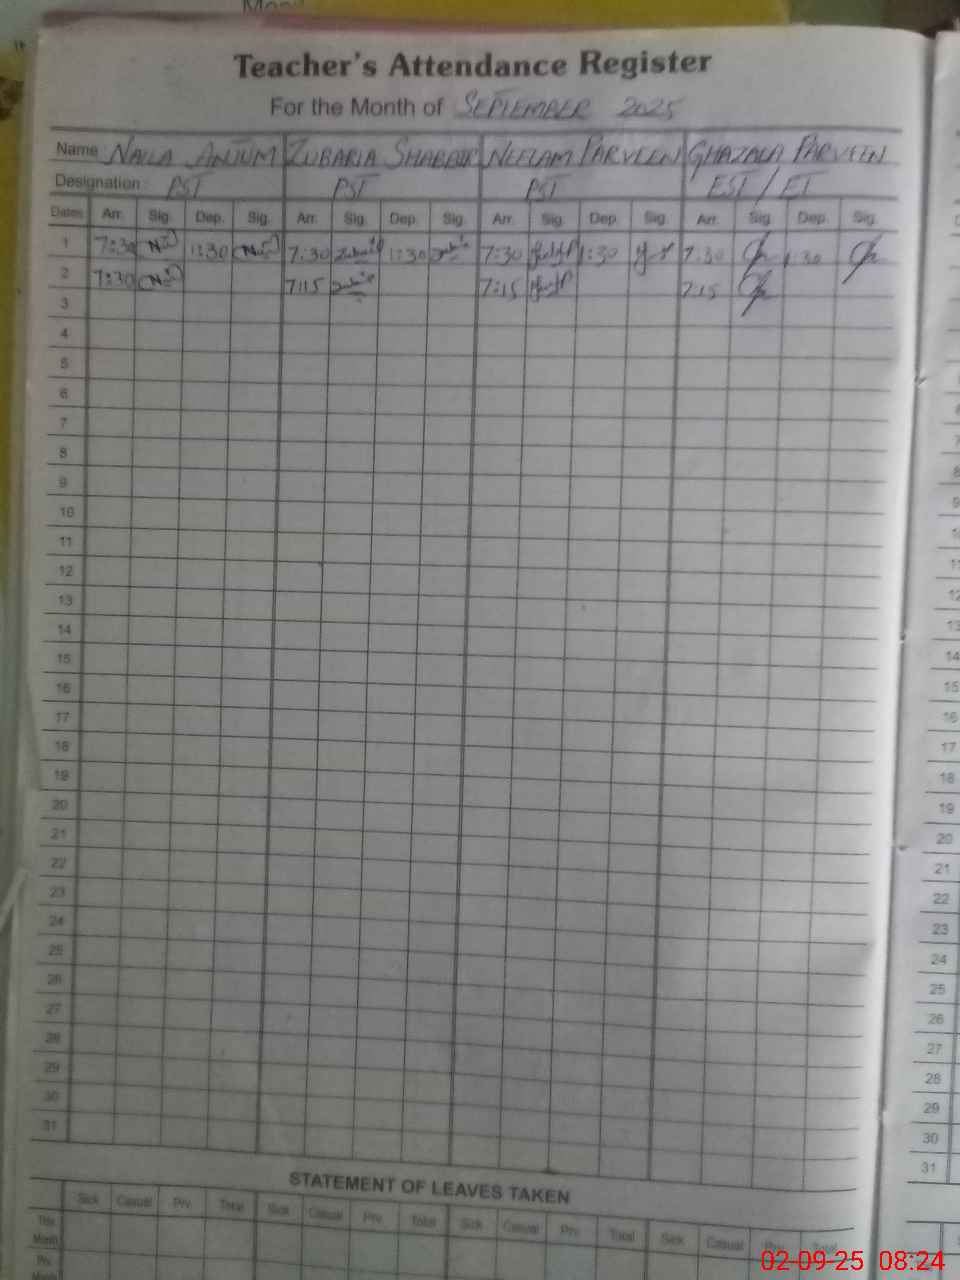 Teacher's Attendance Register
For the Month of SEPTEMBER 2025
Name NAILA ANJUM ZUBARIA SHABBIR NEELAM PARVEEN GHAZALA PARVEEN
Designation: PST PST PST EST / ET
Dates Arr. Sig. Dep. Sig. Arr. Sig. Dep. Sig. Arr. Sig. Dep. Sig. Arr. Sig. Dep. Sig.
1 7:30 1:30 7:30 1:30 7:30 1:30 7:30 1:30
2 7:30 7:15 7:15 7:15
3
4
5
6
7
8
9
10
11
12
13
14
15
16
17
18
19
20
21
22
23
24
25
26
27
28
29
30
31
STATEMENT OF LEAVES TAKEN
Sick Casual Prv. Total Sick Casual Prv. Total Sick Casual Prv. Total Sick Casual Prv. Total
This Month
Prv. Month
14
15
16
17
18
19
20
21
22
23
24
25
26
27
28
29
30
31
02-09-25 08:24